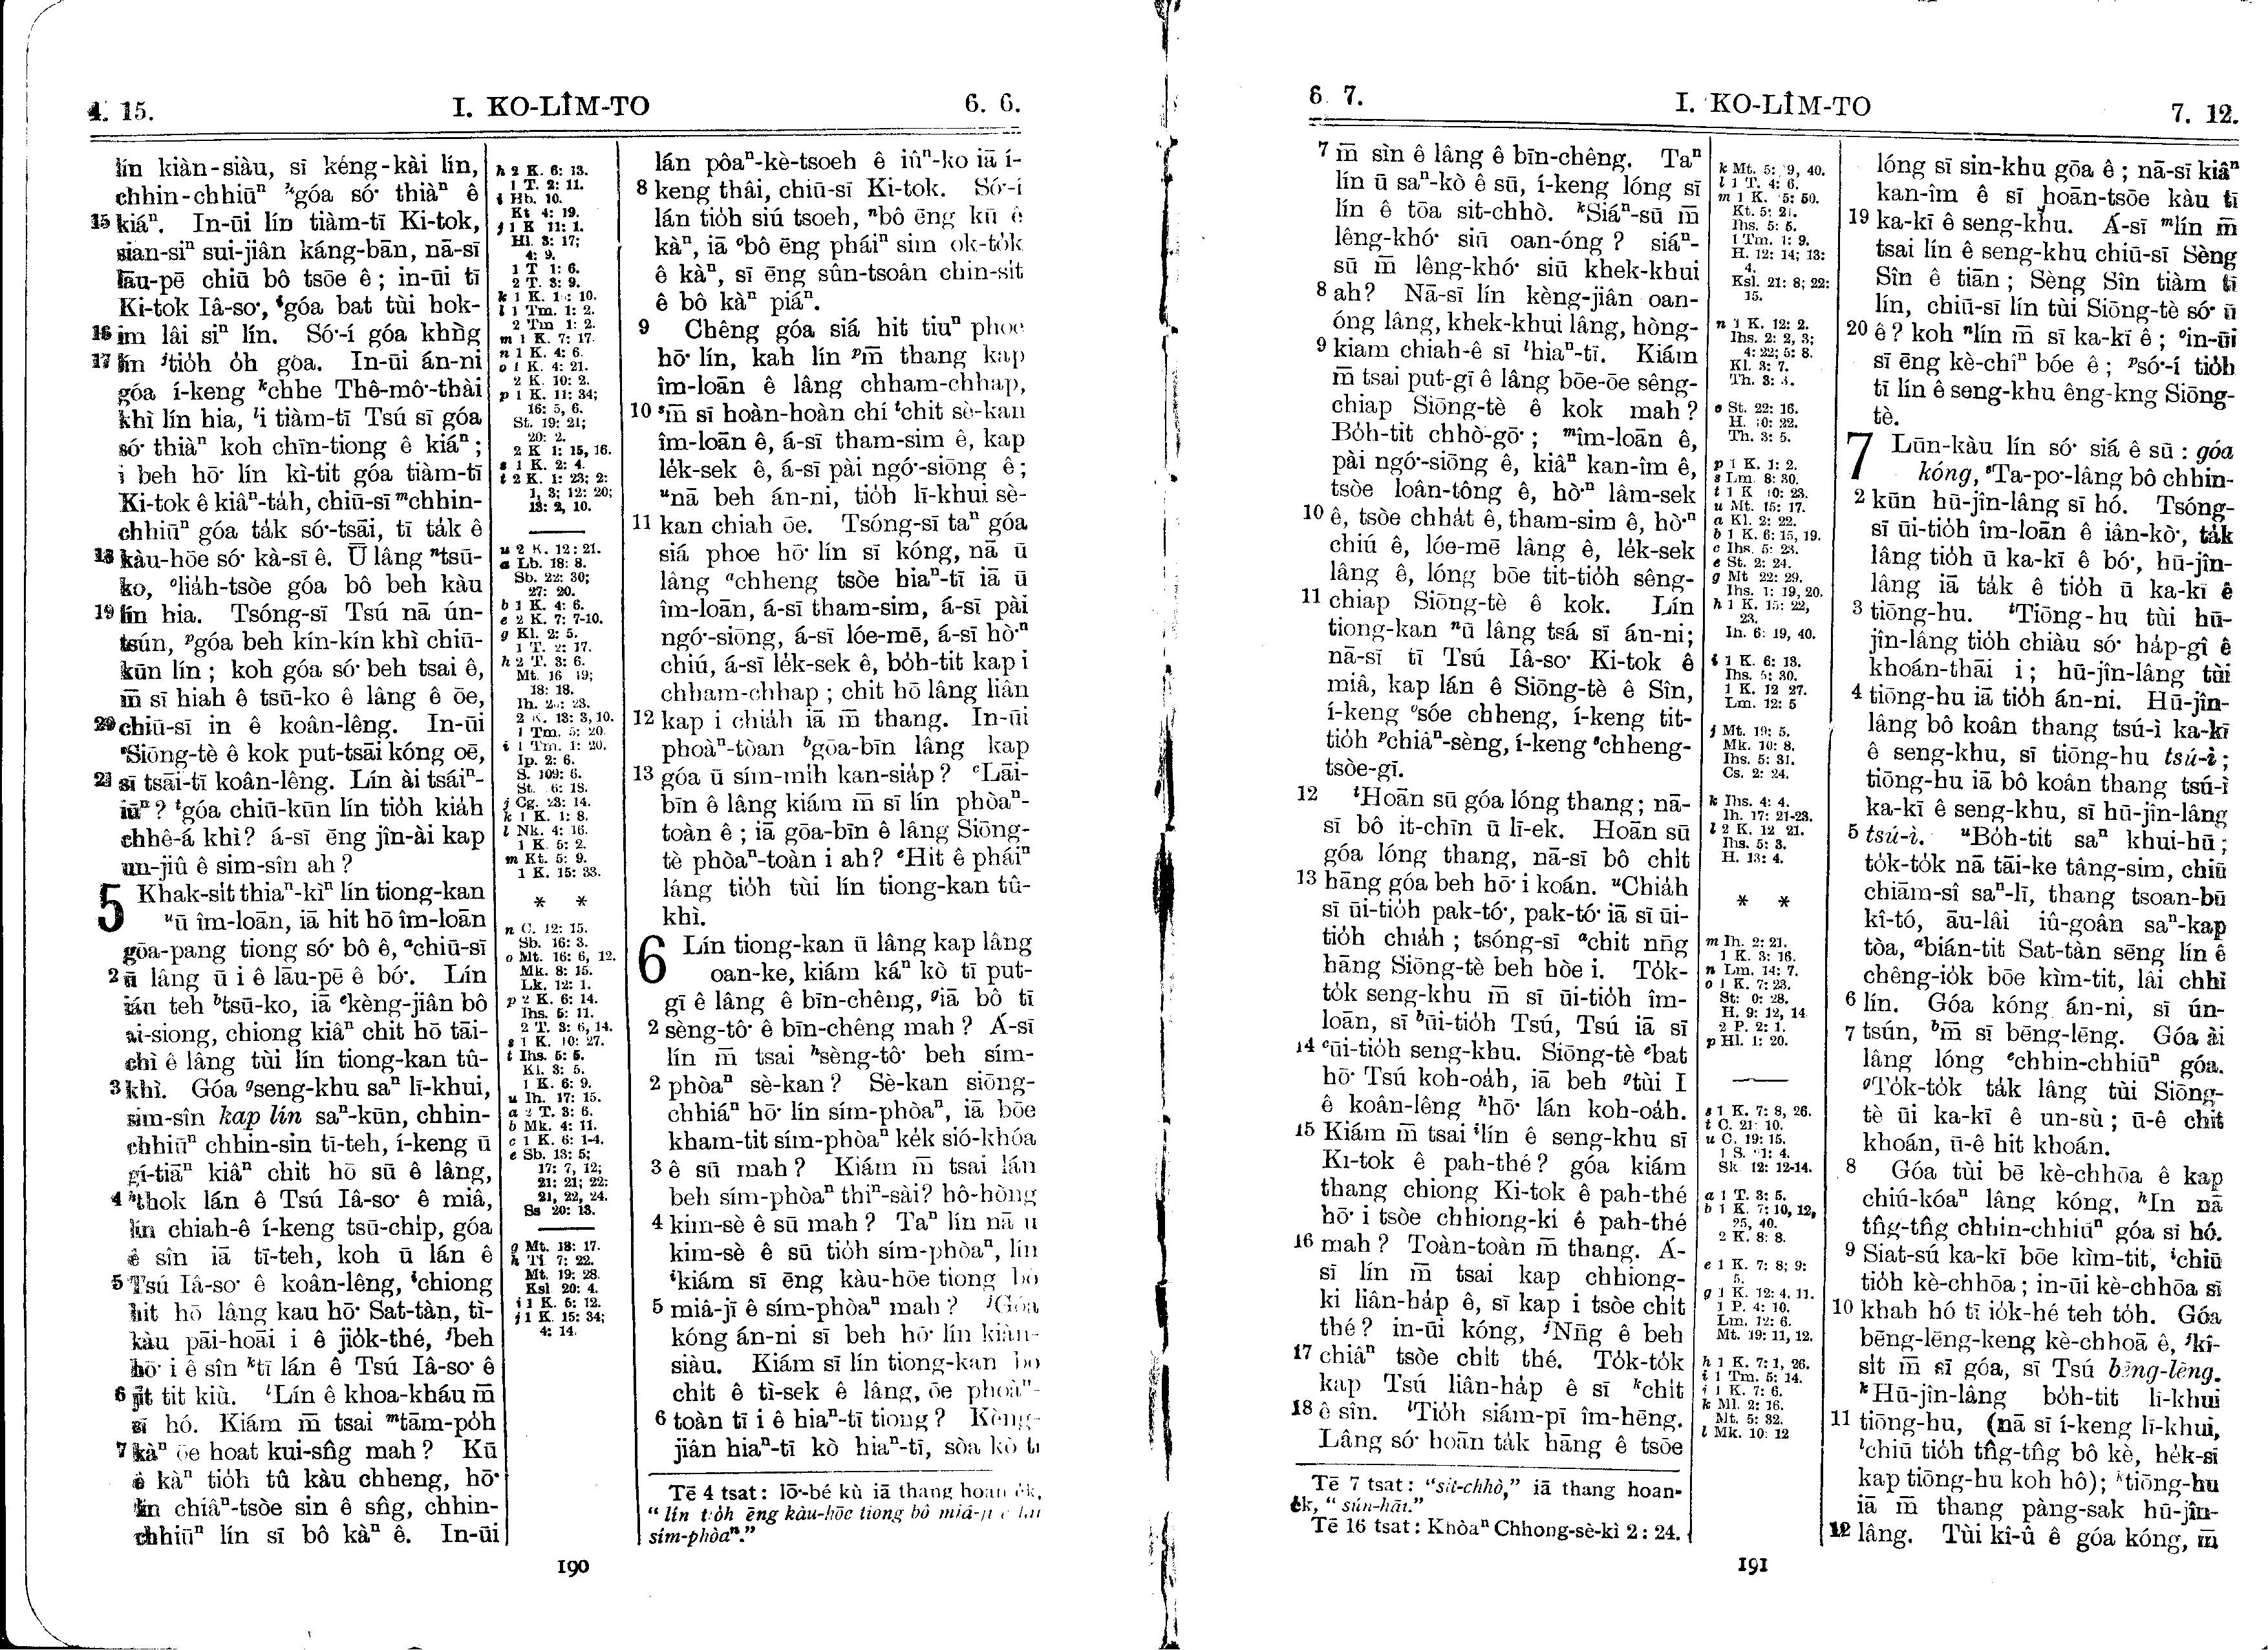 4. 15.
I. KO-LÎM-TO
6. 6.
lín kiàn-siàu, sī kéng-kài lín,
chhin-chhiūⁿ ʰgóa só͘ thiàⁿ ê
15 kiáⁿ. In-ūi lín tiàm-tī Ki-tok,
sian-siⁿ sui-jiân káng-bān, nā-sī
lāu-pē chiū bô tsōe ê; in-ūi tī
Ki-tok Iâ-so͘, ⁱgóa bat tùi hok-
16 im lâi siⁿ lín. Só͘-í góa khǹg
17 lín ʲtio̍h o̍h góa. In-ūi án-ni
góa í-keng ᵏchhe Thê-mô͘-thài
khì lín hia, ˡi tiàm-tī Tsú sī góa
só͘ thiàⁿ koh chīn-tiong ê kiáⁿ;
i beh hō͘ lín kì-tit góa tiàm-tī
Ki-tok ê kiâⁿ-ta̍h, chiū-sī ᵐchhin-
chhiūⁿ góa ta̍k só͘-tsāi, tī ta̍k ê
18 kàu-hōe só͘ kà-sī ê. Ū lâng ⁿtsū-
ko, ᵒlia̍h-tsòe góa bô beh kàu
19 lín hia. Tsóng-sī Tsú nā ún-
tsún, ᵖgóa beh kín-kín khì chiū-
kūn lín; koh góa só͘ beh tsai ê,
m̄ sī hiah ê tsū-ko ê lâng ê ōe,
20 chiū-sī in ê koân-lêng. In-ūi
ˢSiōng-tè ê kok put-tsāi kóng oē,
21 sī tsāi-tī koân-lêng. Lín ài tsáiⁿ-
iūⁿ? ᵗgóa chiū-kūn lín tio̍h kia̍h
chhê-á khì? á-sī ēng jîn-ài kap
un-jiû ê sim-sîn ah?
5 Khak-si̍t thiaⁿ-kìⁿ lín tiong-kan
ᵘū îm-loān, iā hit hō îm-loān
gōa-pang tiong só͘ bô ê, ᵃchiū-sī
2 ū lâng ū i ê lāu-pē ê bó͘. Lín
iáu teh ᵇtsū-ko, iā ᵉkèng-jiân bô
ai-siong, chiong kiâⁿ chit hō tāi-
chì ê lâng tùi lín tiong-kan tû-
3 khì. Góa ᵍseng-khu saⁿ lī-khui,
sim-sîn kap lín saⁿ-kūn, chhin-
chhiūⁿ chhin-sin tī-teh, í-keng ū
gí-tiāⁿ kiâⁿ chit hō sū ê lâng,
4 ʰthok lán ê Tsú Iâ-so͘ ê miâ,
lín chiah-ê í-keng tsū-chi̍p, góa
ê sîn iā tī-teh, koh ū lán ê
5 Tsú Iâ-so͘ ê koân-lêng, ⁱchiong
hit hō lâng kau hō͘ Sat-tàn, tì-
kàu pāi-hoāi i ê jio̍k-thé, ʲbeh
hō͘ i ê sîn ᵏtī lán ê Tsú Iâ-so͘ ê
6 ji̍t tit kiù. ˡLín ê khoa-kháu m̄
sī hó. Kiám m̄ tsai ᵐtām-po̍h
7 kàⁿ ōe hoat kui-sn̂g mah? Kū
ê kàⁿ tio̍h tû kàu chheng, hō͘
lín chiâⁿ-tsòe sin ê sn̂g, chhin-
chhiūⁿ lín sī bô kàⁿ ê. In-ūi
h 2 K. 6: 13.
1 T. 2: 11.
i Hb. 10.
Kt 4: 19.
j 1 K 11: 1.
Hl. 3: 17;
4: 9.
1 T 1: 6.
2 T. 3: 9.
l 1 Tm. 1: 2.
2 Tm 1: 2.
m 1 K. 7: 17.
n 1 K. 4: 6.
o 1 K. 4: 21.
2 K. 10: 2.
p 1 K. 11: 34;
16: 5, 6.
St. 19: 21;
20: 2.
2 K 1: 15, 16.
s 1 K. 2: 4.
t 2 K. 1: 23; 2:
1, 3; 12: 20;
13: 2, 10.
u 2 K. 12: 21.
a Lb. 18: 8.
Sb. 22: 30;
27: 20.
b 1 K. 4: 6.
e 2 K. 7: 7-10.
g Kl. 2: 5.
1 T. 2: 17.
h 2 T. 3: 6.
Mt. 16 19;
18: 18.
2 K. 13: 3, 10.
1 Tm. 5: 20.
i 1 Tm. 1: 20.
Ip. 2: 6.
S. 109: 6.
j Cg. 23: 14.
k 1 K. 1: 8.
l Nk. 4: 16.
1 K. 5: 2.
m Kt. 5: 9.
1 K. 15: 33.
* *
n C. 12: 15.
Sb. 16: 3.
o Mt. 16: 6, 12.
Mk. 8: 15.
Lk. 12: 1.
p 2 K. 6: 14.
Ihs. 5: 11.
2 T. 3: 6, 14.
s 1 K. 10: 27.
t Ihs. 5: 5.
Kl. 3: 5.
1 K. 6: 9.
u Ih. 17: 15.
a 2 T. 3: 6.
b Mk. 4: 11.
c 1 K. 6: 1-4.
e Sb. 13: 5;
17: 7, 12;
21: 21; 22:
21, 22, 24.
Ss 20: 13.
g Mt. 18: 17.
h Tl 7: 22.
Mt. 19: 28.
Ksl 20: 4.
i 1 K. 5: 12.
j 1 K. 15: 34;
4: 14.
lán pôaⁿ-kè-tsoeh ê iûⁿ-ko iā í-
8 keng thâi, chiū-sī Ki-tok. Só͘-í
lán tio̍h siú tsoeh, ⁿbô ēng kū ê
kàⁿ, iā ᵒbô ēng pháiⁿ sim ok-to̍k
ê kàⁿ, sī ēng sûn-tsoân chin-si̍t
ê bô kàⁿ piáⁿ.
9 Chêng góa siá hit tiuⁿ phoe
hō͘ lín, kah lín ᵖm̄ thang kap
îm-loān ê lâng chham-chhap,
10 ˢm̄ sī hoàn-hoàn chí ᵗchit sè-kan
îm-loān ê, á-sī tham-sim ê, kap
le̍k-sek ê, á-sī pài ngó͘-siōng ê;
ᵘnā beh án-ni, tio̍h lī-khui sè-
11 kan chiah ōe. Tsóng-sī taⁿ góa
siá phoe hō͘ lín sī kóng, nā ū
lâng ᵃchheng tsòe hiaⁿ-tī iā ū
îm-loān, á-sī tham-sim, á-sī pài
ngó͘-siōng, á-sī lóe-mē, á-sī hò͘ⁿ
chiú, á-sī le̍k-sek ê, bo̍h-tit kap i
chham-chhap; chit hō lâng liân
12 kap i chia̍h iā m̄ thang. In-ūi
phoàⁿ-tòan ᵇgōa-bīn lâng kap
13 góa ū sím-mi̍h kan-sia̍p? ᶜLāi-
bīn ê lâng kiám m̄ sī lín phòaⁿ-
toàn ê; iā gōa-bīn ê lâng Siōng-
tè phòaⁿ-toàn i ah? ᵉHit ê pháiⁿ
lâng tio̍h tùi lín tiong-kan tû-
khì.
6 Lín tiong-kan ū lâng kap lâng
oan-ke, kiám káⁿ kò tī put-
gī ê lâng ê bīn-chêng, ᵍiā bô tī
2 sèng-tô͘ ê bīn-chêng mah? Á-sī
lín m̄ tsai ʰsèng-tô͘ beh sím-
2 phòaⁿ sè-kan? Sè-kan siōng-
chhiáⁿ hō͘ lín sím-phòaⁿ, iā bōe
kham-tit sím-phòaⁿ ke̍k sió-khóa
3 ê sū mah? Kiám m̄ tsai lán
beh sím-phòaⁿ thiⁿ-sài? hô-hòng
4 kim-sè ê sū mah? Taⁿ lín nā ū
kim-sè ê sū tio̍h sím-phòaⁿ, lín
ⁱkiám sī ēng kàu-hōe tiong bô
5 miâ-jī ê sím-phòaⁿ mah? ʲGóa
kóng án-ni sī beh hō͘ lín kiàn-
siàu. Kiám sī lín tiong-kan bô
chi̍t ê tì-sek ê lâng, ōe phoàⁿ-
6 toàn tī i ê hiaⁿ-tī tiong? Kèng-
jiân hiaⁿ-tī kò hiaⁿ-tī, sòa kò tī
Tē 4 tsat: lō͘-bé kù iā thang hoan e̍k,
“lín tio̍h ēng kàu-hōe tiong bô miâ-jī ê lâi
sím-phòaⁿ.”
190
6 7.
I. KO-LÎM-TO
7. 12.
7 m̄ sìn ê lâng ê bīn-chêng. Taⁿ
lín ū saⁿ-kò ê sū, í-keng lóng sī
lín ê tōa sit-chhò. ᵏSiáⁿ-sū m̄
lêng-khó͘ siū oan-óng? siáⁿ-
sū m̄ lêng-khó͘ siū khek-khui
8 ah? Nā-sī lín kèng-jiân oan-
óng lâng, khek-khui lâng, hòng-
9 kiam chiah-ê sī ˡhiaⁿ-tī. Kiám
m̄ tsai put-gī ê lâng bōe-ōe sêng-
chiap Siōng-tè ê kok mah?
Bo̍h-tit chhò-gō͘; ᵐîm-loān ê,
pài ngó͘-siōng ê, kiâⁿ kan-îm ê,
tsòe loân-tông ê, hò͘ⁿ lâm-sek
10 ê, tsòe chha̍t ê, tham-sim ê, hò͘ⁿ
chiú ê, lóe-mē lâng ê, le̍k-sek
lâng ê, lóng bōe tit-tio̍h sêng-
11 chiap Siōng-tè ê kok. Lín
tiong-kan ⁿū lâng tsá sī án-ni;
nā-sī tī Tsú Iâ-so͘ Ki-tok ê
miâ, kap lán ê Siōng-tè ê Sîn,
í-keng ᵒsóe chheng, í-keng tit-
tio̍h ᵖchiâⁿ-sèng, í-keng ˢchheng-
tsòe-gī.
12 ᵗHoān sū góa lóng thang; nā-
sī bô it-chīn ū lī-ek. Hoān sū
góa lóng thang, nā-sī bô chi̍t
13 hāng góa beh hō͘ i koán. ᵘChia̍h
sī ūi-tio̍h pak-tó͘, pak-tó͘ iā sī ūi-
tio̍h chia̍h; tsóng-sī ᵃchit nn̄g
hāng Siōng-tè beh hòe i. To̍k-
to̍k seng-khu m̄ sī ūi-tio̍h îm-
loān, sī ᵇūi-tio̍h Tsú, Tsú iā sī
14 ᶜūi-tio̍h seng-khu. Siōng-tè ᵉbat
hō͘ Tsú koh-oa̍h, iā beh ᵍtùi I
ê koân-lêng ʰhō͘ lán koh-oa̍h.
15 Kiám m̄ tsai ⁱlín ê seng-khu sī
Ki-tok ê pah-thé? góa kiám
thang chiong Ki-tok ê pah-thé
hō͘ i tsòe chhiong-ki ê pah-thé
16 mah? Toàn-toàn m̄ thang. Á-
sī lín m̄ tsai kap chhiong-
ki liân-ha̍p ê, sī kap i tsòe chi̍t
thé? in-ūi kóng, ʲNn̄g ê beh
17 chiâⁿ tsòe chi̍t thé. To̍k-to̍k
kap Tsú liân-ha̍p ê sī ᵏchi̍t
18 ê sîn. ˡTio̍h siám-pī îm-hēng.
Lâng só͘ hoān ta̍k hāng ê tsōe
Tē 7 tsat: “sit-chhò,” iā thang hoan-
e̍k, “sún-hāi.”
Tē 16 tsat: Khòaⁿ Chhong-sè-kì 2: 24.
l 1 T. 4: 6.
Kt. 5: 21.
Ihs. 5: 5.
1 Tm. 1: 9.
H. 12: 14; 13:
4.
Ksl. 21: 8; 22:
15.
n 1 K. 12: 2.
Ihs. 2: 2, 3;
4: 22; 5: 8.
Kl. 3: 7.
o St. 22: 16.
Th. 3: 5.
p 1 K. 1: 2.
s Lm. 8: 30.
u Mt. 15: 17.
a Kl. 2: 22.
b 1 K. 6: 15, 19.
c Ihs. 5: 23.
e St. 2: 24.
g Mt 22: 29.
Ihs. 1: 19, 20.
h 1 K. 15: 22,
23.
Ih. 6: 19, 40.
i 1 K. 6: 18.
Ihs. 5: 30.
1 K. 12 27.
Lm. 12: 5
j Mt. 19: 5.
Mk. 10: 8.
Ihs. 5: 31.
Cs. 2: 24.
k Ihs. 4: 4.
Ih. 17: 21-23.
l 2 K. 12 21.
Ihs. 5: 3.
H. 13: 4.
* *
m Ih. 2: 21.
1 K. 3: 16.
n Lm. 14: 7.
o 1 K. 7: 23.
H. 9: 12, 14
2 P. 2: 1.
p Hl. 1: 20.
s 1 K. 7: 8, 26.
t C. 21 10.
u C. 19: 15.
Sk 12: 12-14.
a 1 T. 3: 5.
b 1 K. 7: 10, 12,
25, 40.
2 K. 8: 8.
e 1 K. 7: 8; 9:
5.
g 1 K. 12: 4, 11.
1 P. 4: 10.
Lm. 12: 6.
Mt. 19: 11, 12.
h 1 K. 7: 1, 26.
i 1 Tm. 5: 14.
j 1 K. 7: 6.
k Ml. 2: 16.
Mt. 5: 32.
l Mk. 10: 12
lóng sī sin-khu gōa ê; nā-sī kiâⁿ
kan-îm ê sī hoān-tsōe kàu tī
19 ka-kī ê seng-khu. Á-sī ᵐlín m̄
tsai lín ê seng-khu chiū-sī Sèng
Sîn ê tiān; Sèng Sîn tiàm tī
lín, chiū-sī lín tùi Siōng-tè só͘ ū
20 ê? koh ⁿlín m̄ sī ka-kī ê; ᵒin-ūi
sī ēng kè-chîⁿ bóe ê; ᵖsó͘-í tio̍h
tī lín ê seng-khu êng-kng Siōng-
tè.
7 Lūn-kàu lín só͘ siá ê sū: góa
kóng, ˢTa-po͘-lâng bô chhin-
2 kūn hū-jîn-lâng sī hó. Tsóng-
sī ūi-tio̍h îm-loān ê iân-kò͘, ta̍k
lâng tio̍h ū ka-kī ê bó͘, hū-jîn-
lâng iā ta̍k ê tio̍h ū ka-kī ê
3 tiōng-hu. ᵗTiōng-hu tùi hū-
jîn-lâng tio̍h chiàu só͘ ha̍p-gî ê
khoán-thāi i; hū-jîn-lâng tùi
4 tiōng-hu iā tio̍h án-ni. Hū-jîn-
lâng bô koân thang tsú-ì ka-kī
ê seng-khu, sī tiōng-hu tsú-ì;
tiōng-hu iā bô koân thang tsú-ì
ka-kī ê seng-khu, sī hū-jîn-lâng
5 tsú-ì. ᵘBo̍h-tit saⁿ khui-hū;
to̍k-to̍k nā tāi-ke tâng-sim, chiū
chiām-sî saⁿ-lī, thang tsoan-bū
kî-tó, āu-lâi iû-goân saⁿ-kap
tòa, ᵃbián-tit Sat-tàn sēng lín ê
chêng-io̍k bōe kìm-tit, lâi chhì
6 lín. Góa kóng án-ni, sī ún-
7 tsún, ᵇm̄ sī bēng-lēng. Góa ài
lâng lóng ᵉchhin-chhiūⁿ góa.
ᵍTo̍k-to̍k ta̍k lâng tùi Siōng-
tè ūi ka-kī ê un-sù; ū-ê chit
khoán, ū-ê hit khoán.
8 Góa tùi bē kè-chhōa ê kap
chiú-kóaⁿ lâng kóng, ʰIn nā
tn̂g-tn̂g chhin-chhiūⁿ góa sī hó.
9 Siat-sú ka-kī bōe kìm-tit, ⁱchiū
tio̍h kè-chhōa; in-ūi kè-chhōa sī
10 khah hó tī io̍k-hé teh to̍h. Góa
bēng-lēng-keng kè-chhoā ê, ʲkî-
si̍t m̄ sī góa, sī Tsú bēng-lēng.
ᵏHū-jîn-lâng bo̍h-tit lī-khui
11 tiōng-hu, (nā sī í-keng lī-khui,
ˡchiū tio̍h tn̂g-tn̂g bô kè, he̍k-sī
kap tiōng-hu koh hô); ᵏtiōng-hu
iā m̄ thang pàng-sak hū-jîn-
12 lâng. Tùi kî-û ê góa kóng, m̄
191